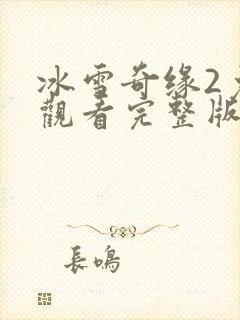 冰雪奇缘2
觀看完整版
長鳴